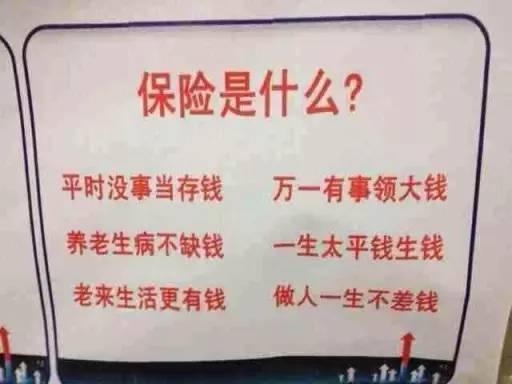 保险是什么?
平时没事当存钱 万一有事领大钱
养老生病不缺钱 一生太平钱生钱
老来生活更有钱 做人一生不差钱